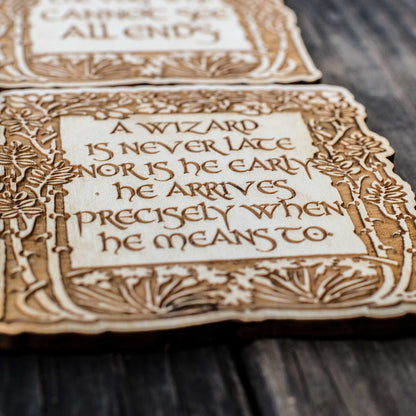 CANNOT SEE
ALL ENDS
A WIZARD
IS NEVER LATE
NOR IS HE EARLY
HE ARRIVES
PRECISELY WHEN
HE MEANS TO.